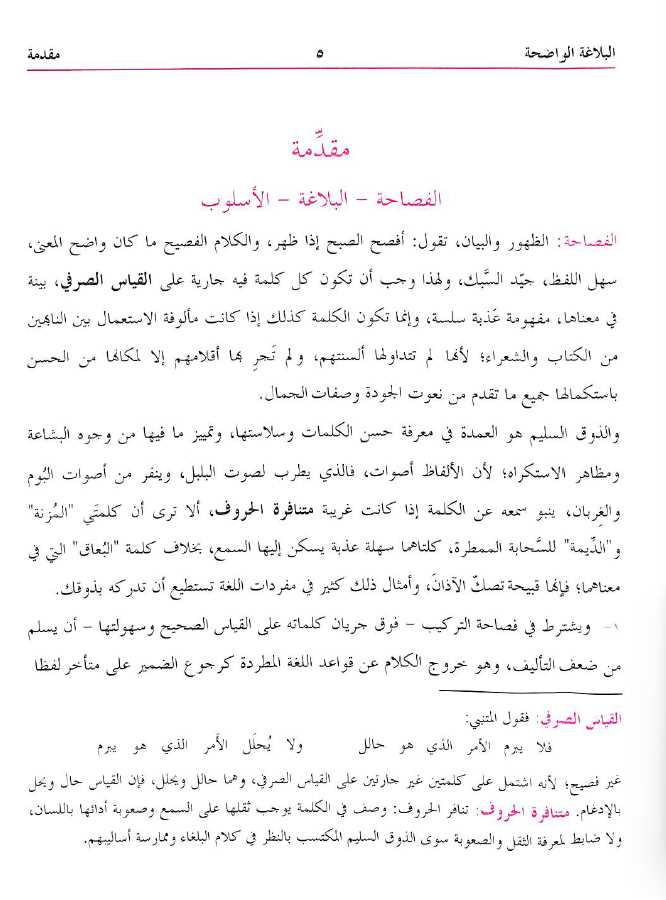 البلاغة الواضحة ٥ مقدمة
مقدِّمة
الفصاحة - البلاغة - الأسلوب
الفصاحة: الظهور والبيان، تقول: أفصح الصبح إذا ظهر، والكلام الفصيح ما كان واضح المعنى،
سهل اللفظ، جيّد السَّبك، ولهذا وجب أن تكون كل كلمة فيه جارية على القياس الصرفي، بينة
في معناها، مفهومة عَذبة سلسة، وإنما تكون الكلمة كذلك إذا كانت مألوفة الاستعمال بين النابهين
من الكتاب والشعراء؛ لأنها لم تتداولها ألسنتهم، ولم تَجرِ بها أقلامهم إلا لمكانها من الحسن
باستكمالها جميع ما تقدم من نعوت الجودة وصفات الجمال.
والذوق السليم هو العمدة في معرفة حسن الكلمات وسلاستها، وتمييز ما فيها من وجوه البشاعة
ومظاهر الاستكراه؛ لأن الألفاظ أصوات، فالذي يطرب لصوت البلبل، وينفر من أصوات البُوم
والغِربان، ينبو سمعه عن الكلمة إذا كانت غريبة متنافرة الحروف، ألا ترى أن كلمتَي "المُزنة"
و"الدِّيمة" للسَّحابة الممطرة، كلتاهما سهلة عذبة يسكن إليها السمع، بخلاف كلمة "البُعاق" التي في
معناهما؛ فإنها قبيحة تصكّ الآذانَ، وأمثال ذلك كثير في مفردات اللغة تستطيع أن تدركه بذوقك.
١- ويشترط في فصاحة التركيب - فوق جريان كلماته على القياس الصحيح وسهولتها - أن يسلم
من ضعف التأليف، وهو خروج الكلام عن قواعد اللغة المطردة كرجوع الضمير على متأخر لفظا
القياس الصرفي: فقول المتنبي:
فلا يبرم الأمر الذي هو حالل ولا يُحلَل الأَمر الذي هو يبرم
غير فصيح؛ لأنه اشتمل على كلمتين غير جارتين على القياس الصرفي، وهما حالل ويحلل، فإن القياس حال ويحل
بالإدغام. متنافرة الحروف: تنافر الحروف: وصف في الكلمة يوجب ثقلها على السمع وصعوبة أدائها باللسان،
ولا ضابط لمعرفة الثقل والصعوبة سوى الذوق السليم المكتسب بالنظر في كلام البلغاء وممارسة أساليبهم.